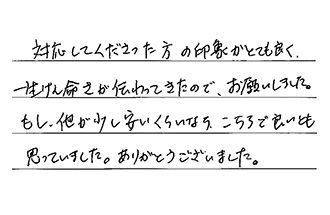 対応してくださった方の印象がとても良く、
一生けん命さが伝わってきたので、お願いしました。
もし、他が少し安いくらいなら、こちらで良いとも
思っていました。ありがとうございました。